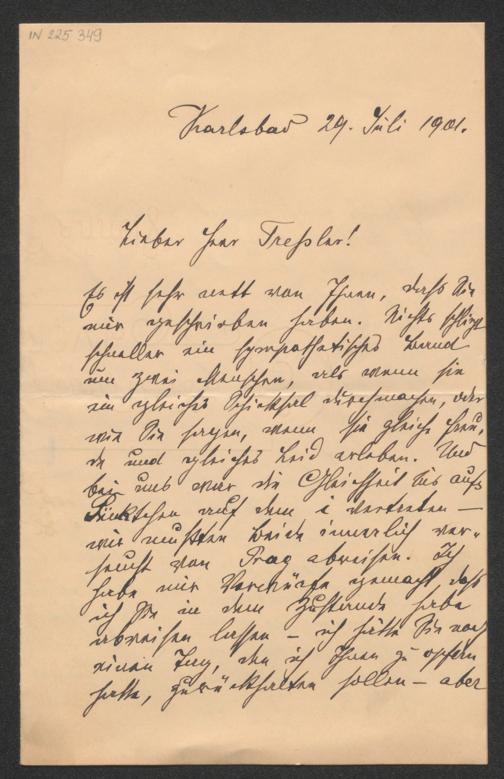 IN 225 349
Karlsbad 29. Juli 1901.
Lieber Herr Treßler!
Es ist sehr nett von Ihnen, dass Sie
mir geschrieben haben. Nichts schlingt
schneller ein sympathetisches Band
um zwei Menschen, als wenn sie
ein gleiches Schicksal durchmachen, oder
wie Sie sagen, wenn sie gleiche Freu,
de und gleiches Leid erleben. Und
bei uns war die Gleichheit bis aufs
Pünktchen auf dem i vertreten –
wir mussten beide innerlich ver-
seucht von Prag abreisen. Ich
habe mir Vorwürfe gemacht, dass
ich Sie in dem Zustande habe
abreisen lassen – ich hätte Sie noch
einen Tag, den ich Ihnen zu opfern
hatte, zurückhalten sollen – aber